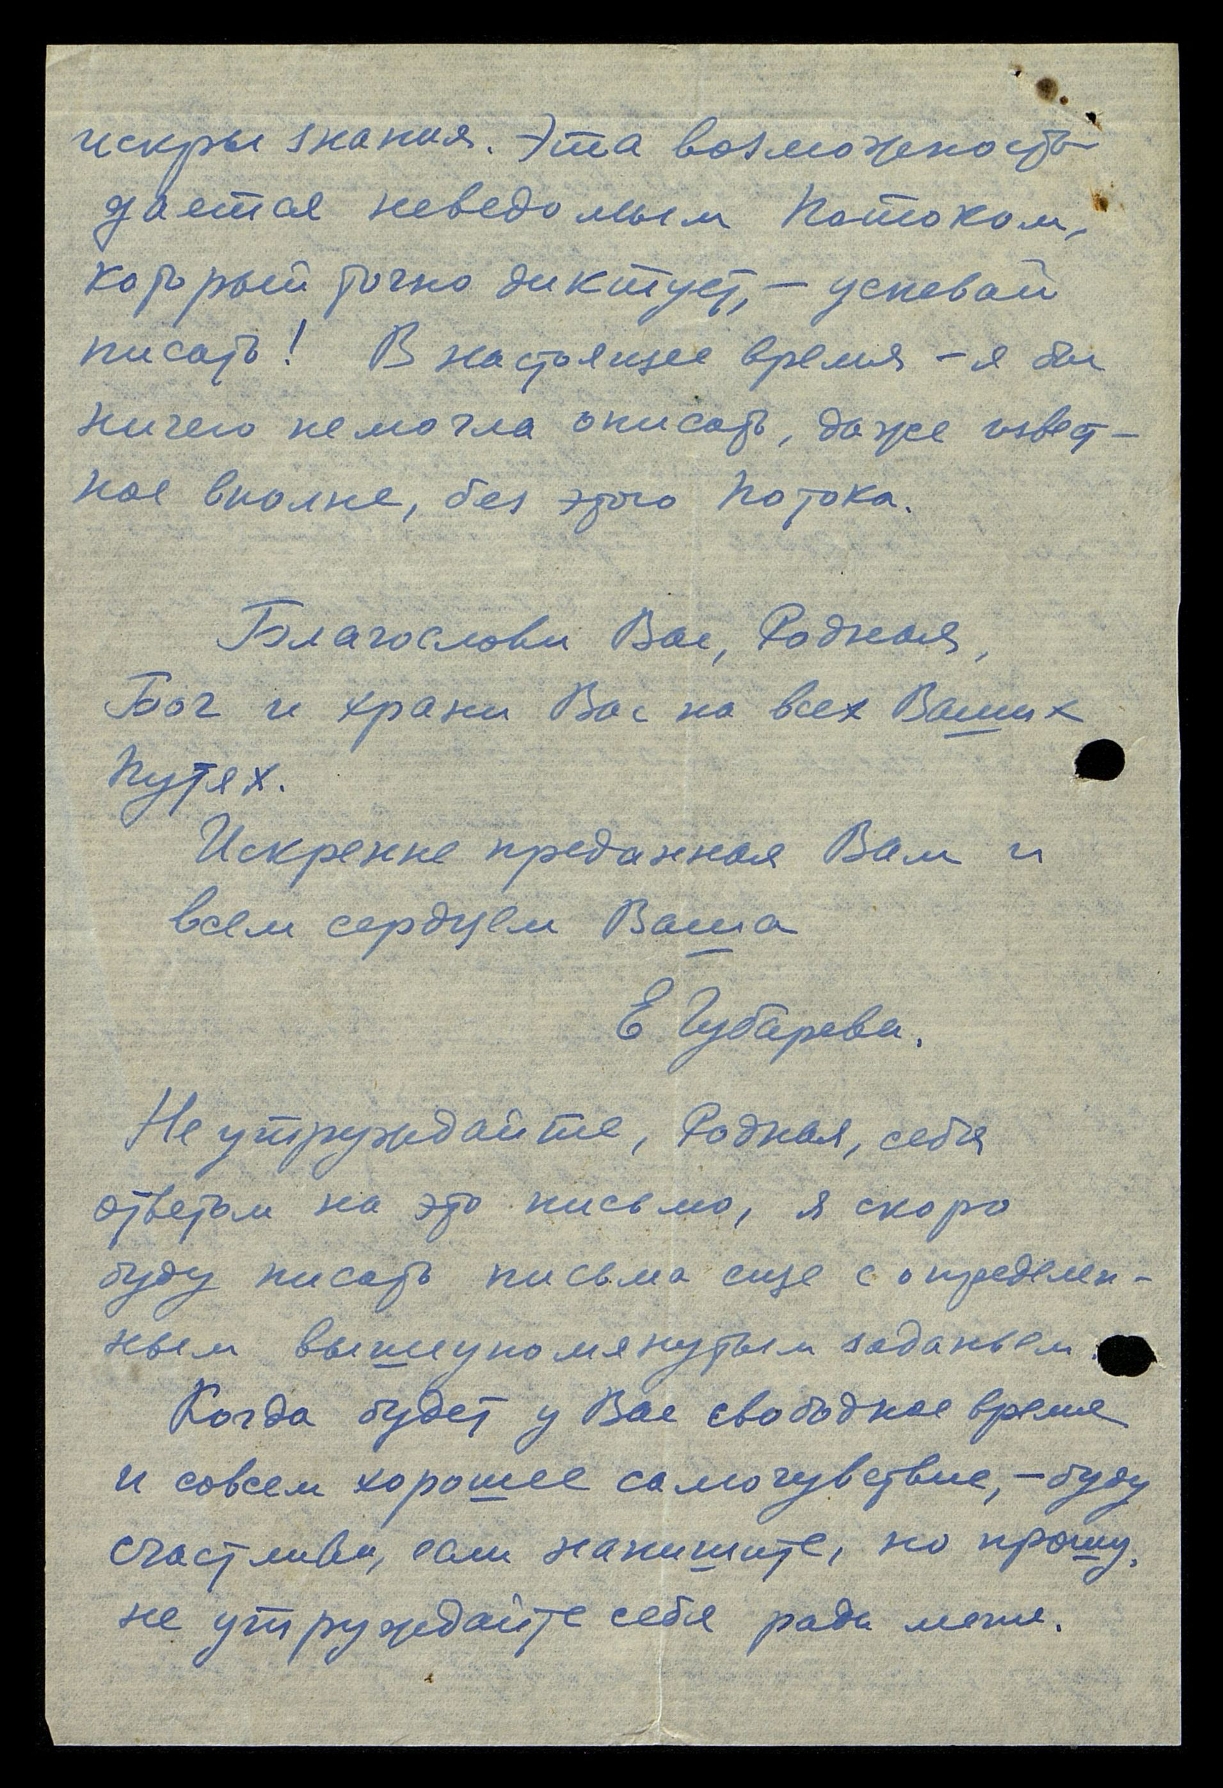 искры знания. Эта возможность
дается неведомым Потоком,
который точно диктует, – успевай
писать! В настоящее время – я бы
ничего не могла описать, даже извест-
ное вполне, без этого Потока.
Благослови Вас, Родная,
Бог и храни Вас на всех Ваших
Путях.
Искренне преданная Вам и
всем сердцем Ваша
Е Губарева.
Не утруждайте, Родная, себя
ответом на это письмо, я скоро
буду писать письма еще с определен-
ным вышеупомянутым заданьем.
Когда будет у Вас свободное время
и совсем хорошее самочувствие, – буду
счастлива, если напишите, но прошу,
не утруждайте себя ради меня.